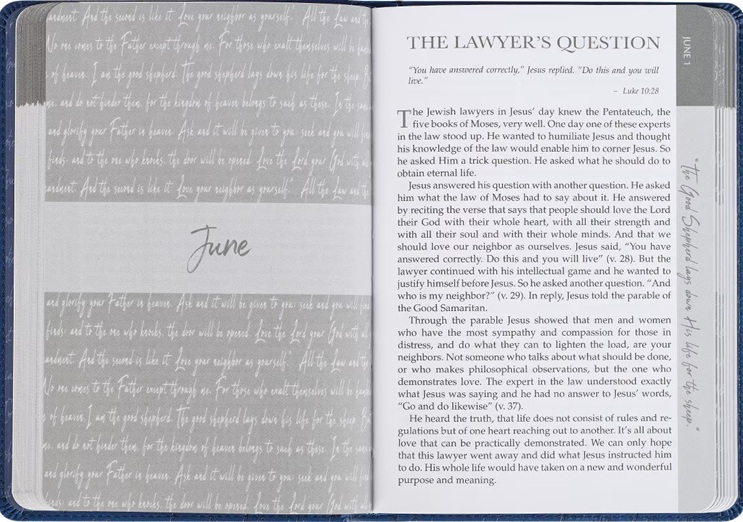 andment. And the second is like it: Love your neighbor as yourself." All the Law and
No one comes to the Father except through me. For those who exalt themselves will be
of heaven. I am the good shepherd. The good shepherd lays down his life for the sheep.
me, and do not hinder them, for the kingdom of heaven belongs to such as these. In the
and glorify your Father in heaven. Ask and it will be given to you; seek and you will
finds; and to the one who knocks, the door will be opened. Love the Lord your God with
andment. And the second is like it: Love your neighbor as yourself." All the Law
June
and glorify your Father in heaven. Ask and it will be given to you; seek and you will
finds; and to the one who knocks, the door will be opened. Love the Lord your God with
andment. And the second is like it: Love your neighbor as yourself." All the Law
No one comes to the Father except through me. For those who exalt themselves will be
of heaven. I am the good shepherd. The good shepherd lays down his life for the sheep.
me, and do not hinder them, for the kingdom of heaven belongs to such as these. In the
and glorify your Father in heaven. Ask and it will be given to you; seek and you will
finds; and to the one who knocks, the door will be opened. Love the Lord your God with
THE LAWYER'S QUESTION
"You have answered correctly," Jesus replied. "Do this and you will
live."
– Luke 10:28
The Jewish lawyers in Jesus' day knew the Pentateuch, the
five books of Moses, very well. One day one of these experts
in the law stood up. He wanted to humiliate Jesus and thought
his knowledge of the law would enable him to corner Jesus. So
he asked Him a trick question. He asked what he should do to
obtain eternal life.
Jesus answered his question with another question. He asked
him what the law of Moses had to say about it. He answered
by reciting the verse that says that people should love the Lord
their God with their whole heart, with all their strength and
with all their soul and with their whole minds. And that we
should love our neighbor as ourselves. Jesus said, "You have
answered correctly. Do this and you will live" (v. 28). But the
lawyer continued with his intellectual game and he wanted to
justify himself before Jesus. So he asked another question. "And
who is my neighbor?" (v. 29). In reply, Jesus told the parable of
the Good Samaritan.
Through the parable Jesus showed that men and women
who have the most sympathy and compassion for those in
distress, and do what they can to lighten the load, are your
neighbors. Not someone who talks about what should be done,
or who makes philosophical observations, but the one who
demonstrates love. The expert in the law understood exactly
what Jesus was saying and he had no answer to Jesus' words,
"Go and do likewise" (v. 37).
He heard the truth, that life does not consist of rules and re-
gulations but of one heart reaching out to another. It's all about
love that can be practically demonstrated. We can only hope
that this lawyer went away and did what Jesus instructed him
to do. His whole life would have taken on a new and wonderful
purpose and meaning.
JUNE 1
"The Good Shepherd lays down His life for the sheep."